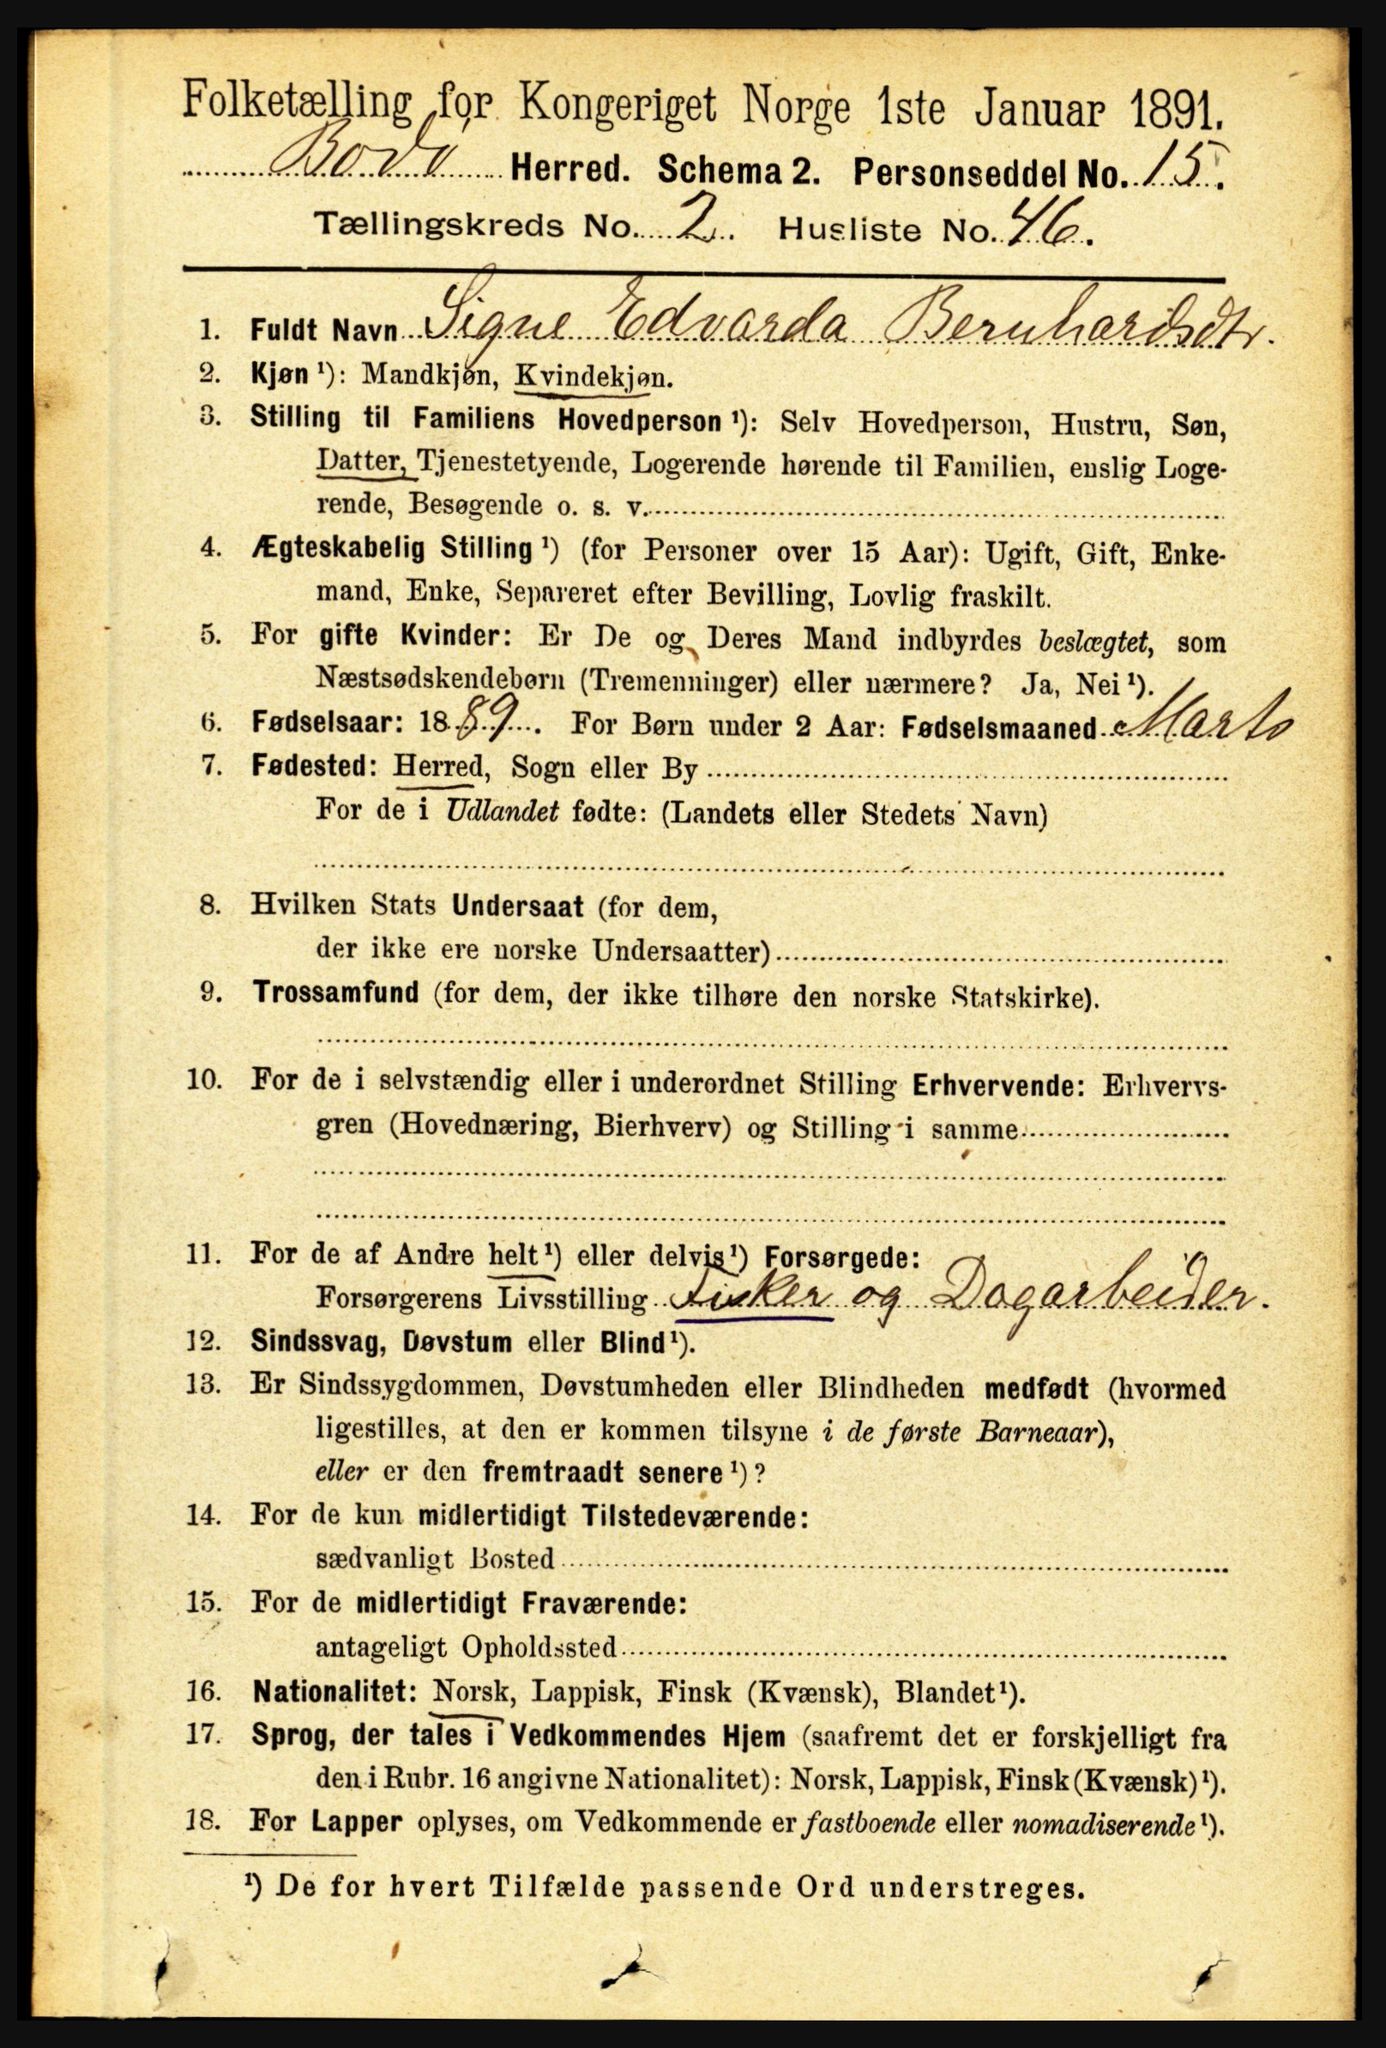 Folketælling for Kongeriget Norge 1ste Januar 1891.
Bodø Herred. Schema 2. Personseddel No. 15.
Tællingskreds No. 2. Husliste No. 46.
1. Fuldt Navn Signe Edvarda Bernhardsdtr.
2. Kjøn ¹): Mandkjøn, Kvindekjøn.
3. Stilling til Familiens Hovedperson ¹): Selv Hovedperson, Hustru, Søn,
Datter, Tjenestetyende, Logerende hørende til Familien, enslig Loge-
rende, Besøgende o. s. v.
4. Ægteskabelig Stilling ¹) (for Personer over 15 Aar): Ugift, Gift, Enke-
mand, Enke, Separeret efter Bevilling, Lovlig fraskilt.
5. For gifte Kvinder: Er De og Deres Mand indbyrdes beslægtet, som
Næstsødskendebørn (Tremenninger) eller nærmere? Ja, Nei ¹).
6. Fødselsaar: 1889. For Børn under 2 Aar: Fødselsmaaned Marts
7. Fødested: Herred, Sogn eller By
For de i Udlandet fødte: (Landets eller Stedets Navn)
8. Hvilken Stats Undersaat (for dem,
der ikke ere norske Undersaatter)
9. Trossamfund (for dem, der ikke tilhøre den norske Statskirke).
10. For de i selvstændig eller i underordnet Stilling Erhvervende: Erhvervs-
gren (Hovednæring, Bierhverv) og Stilling i samme
11. For de af Andre helt ¹) eller delvis ¹) Forsørgede:
Forsørgerens Livsstilling Fisker og Dagarbeider.
12. Sindssvag, Døvstum eller Blind ¹).
13. Er Sindssygdommen, Døvstumheden eller Blindheden medfødt (hvormed
ligestilles, at den er kommen tilsyne i de første Barneaar),
eller er den fremtraadt senere ¹)?
14. For de kun midlertidigt Tilstedeværende:
sædvanligt Bosted
15. For de midlertidigt Fraværende:
antageligt Opholdssted
16. Nationalitet: Norsk, Lappisk, Finsk (Kvænsk), Blandet ¹).
17. Sprog, der tales i Vedkommendes Hjem (saafremt det er forskjelligt fra
den i Rubr. 16 angivne Nationalitet): Norsk, Lappisk, Finsk (Kvænsk) ¹).
18. For Lapper oplyses, om Vedkommende er fastboende eller nomadiserende ¹).
¹) De for hvert Tilfælde passende Ord understreges.